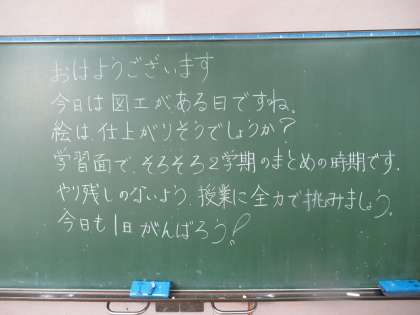 おはようございます
今日は図工がある日ですね。
絵は、仕上がりそうでしょうか?
学習面で、そろそろ2学期のまとめの時期です。
やり残しのないよう、授業に全力で挑みましょう。
今日も1日がんばろう!